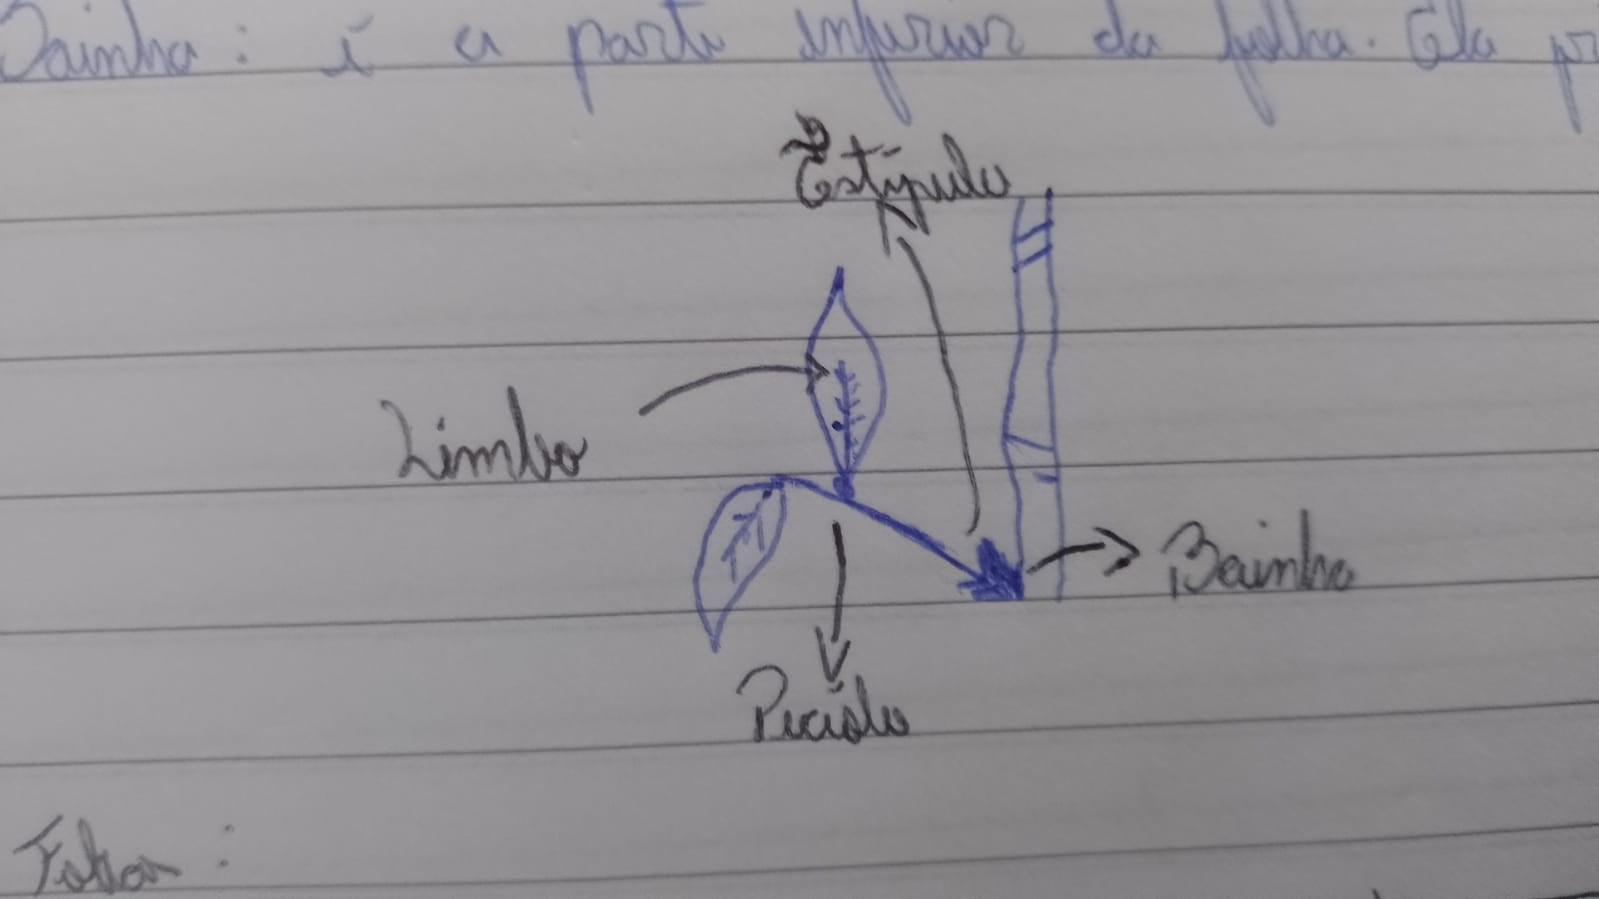 Bainha: é a parte inferior da folha. Ela pr
Estípulo
Limbo
Bainha
Pecíolo
Folhas: